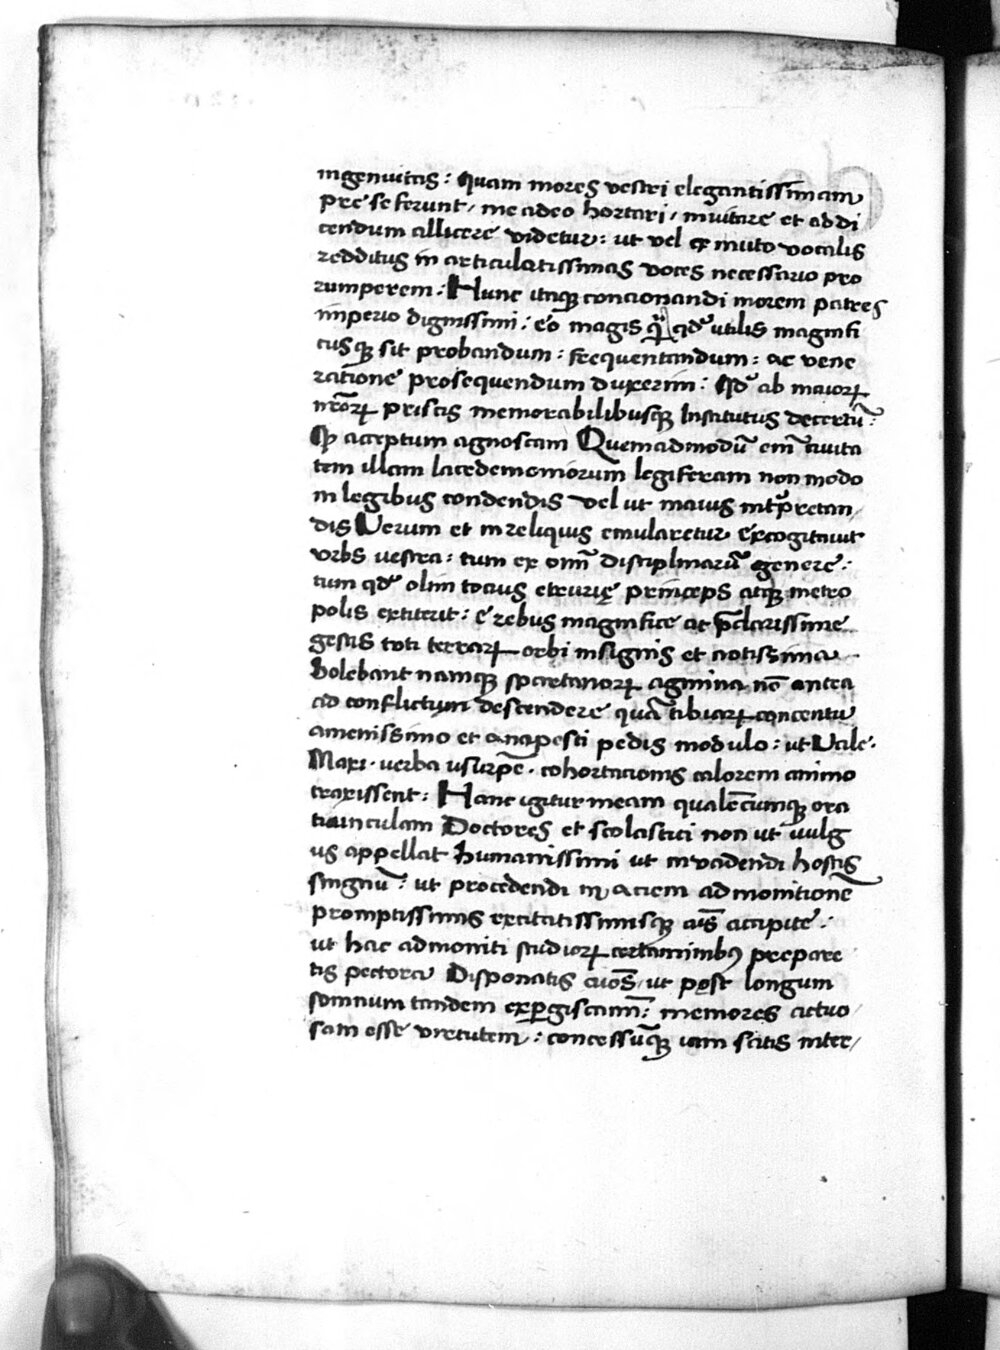 ingenuitas: quam mores vestri elegantissimam
pre se ferunt / me adeo hortari / inuitare et ad di
cendum allicere videtur: ut vel ex muto vocalis
redditus in articulatissimas voces necessario pro
rumperem: Hunc itaqꝫ concionandi morem patres
imperio dignissimi: eo magis qͣꝫ qd' utilis magnifi
cusqꝫ sit probandum: frequentandum: ac vene
ratione prosequendum duxerim: Qd' ab maioꝝ
nr̄oꝝ priscis memorabilibusqꝫ Institutus decretū:
Qꝫ acceptum agnoscam Quemadmodū eni͞ ciuita
tem illam lacedemoniorum legiferam non modo
in legibus condendis vel ut maius int'pretan/
dis Verum et in reliquis emularetur excogitauit
vrbs vestra: tum ex omni͞ disciplinarū genere:
tum qd' olim tocius etrurię princeps atqꝫ metro
polis extiterit: e rebus magnifice ac p̄clarissime
gestis toti terraꝝ orbi insignis et notissima
Solebant namqꝫ spartanoꝝ agmina nō antea
ad conflictum descendere quā tibiaꝝ concentu
amenissimo et anapesti pedis modulo: ut Vale.
Maxi. verba usurpē. cohortacionis calorem animo
traxissent: Hanc igitur meam qualēcumqꝫ ora
tiunculam Doctores et scolastici non ut uulg
us appellat humanissimi ut inuadendi hostis
singnū: ut procedendi in aciem admonitionē
promptissimis excitatissimisqꝫ aīs accipite:
ut hac admoniti studioꝝ certaminibꝰ prepare
tis pectora Disponatis aīos ut post longum
somnum tandem exꝑgiscamī: memores actuo/
sam esse virtutem: concessūqꝫ iam scitis inter/